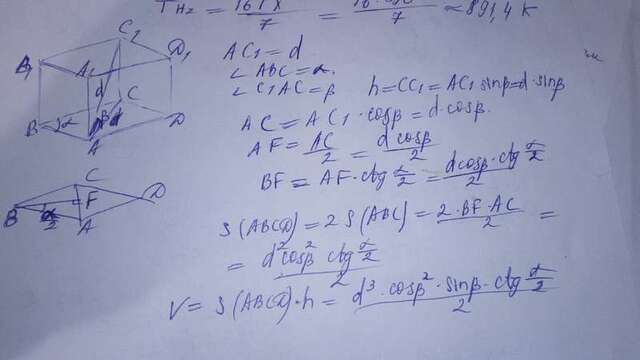 T H₂ = 161 X / 7 = / 7 ≈ 891,4 K
C₁
B₁ A₁ D₁
d
B α β C D
A
AC₁ = d
∠ ABC = α
∠ C₁AC = β h = CC₁ = AC₁ sinβ = d·sinβ
AC = AC₁ · cosβ = d cosβ
AF = AC/2 = d cosβ/2
BF = AF · ctg α/2 = d cosβ · ctg α/2 / 2
C
B F D
α/2
A
S(ABCD) = 2 S(ABC) = 2·BF·AC/2 =
= d² cos²β ctg α/2 / 2
V = S(ABCD)·h = d³ · cosβ² · sinβ · ctg α/2 / 2